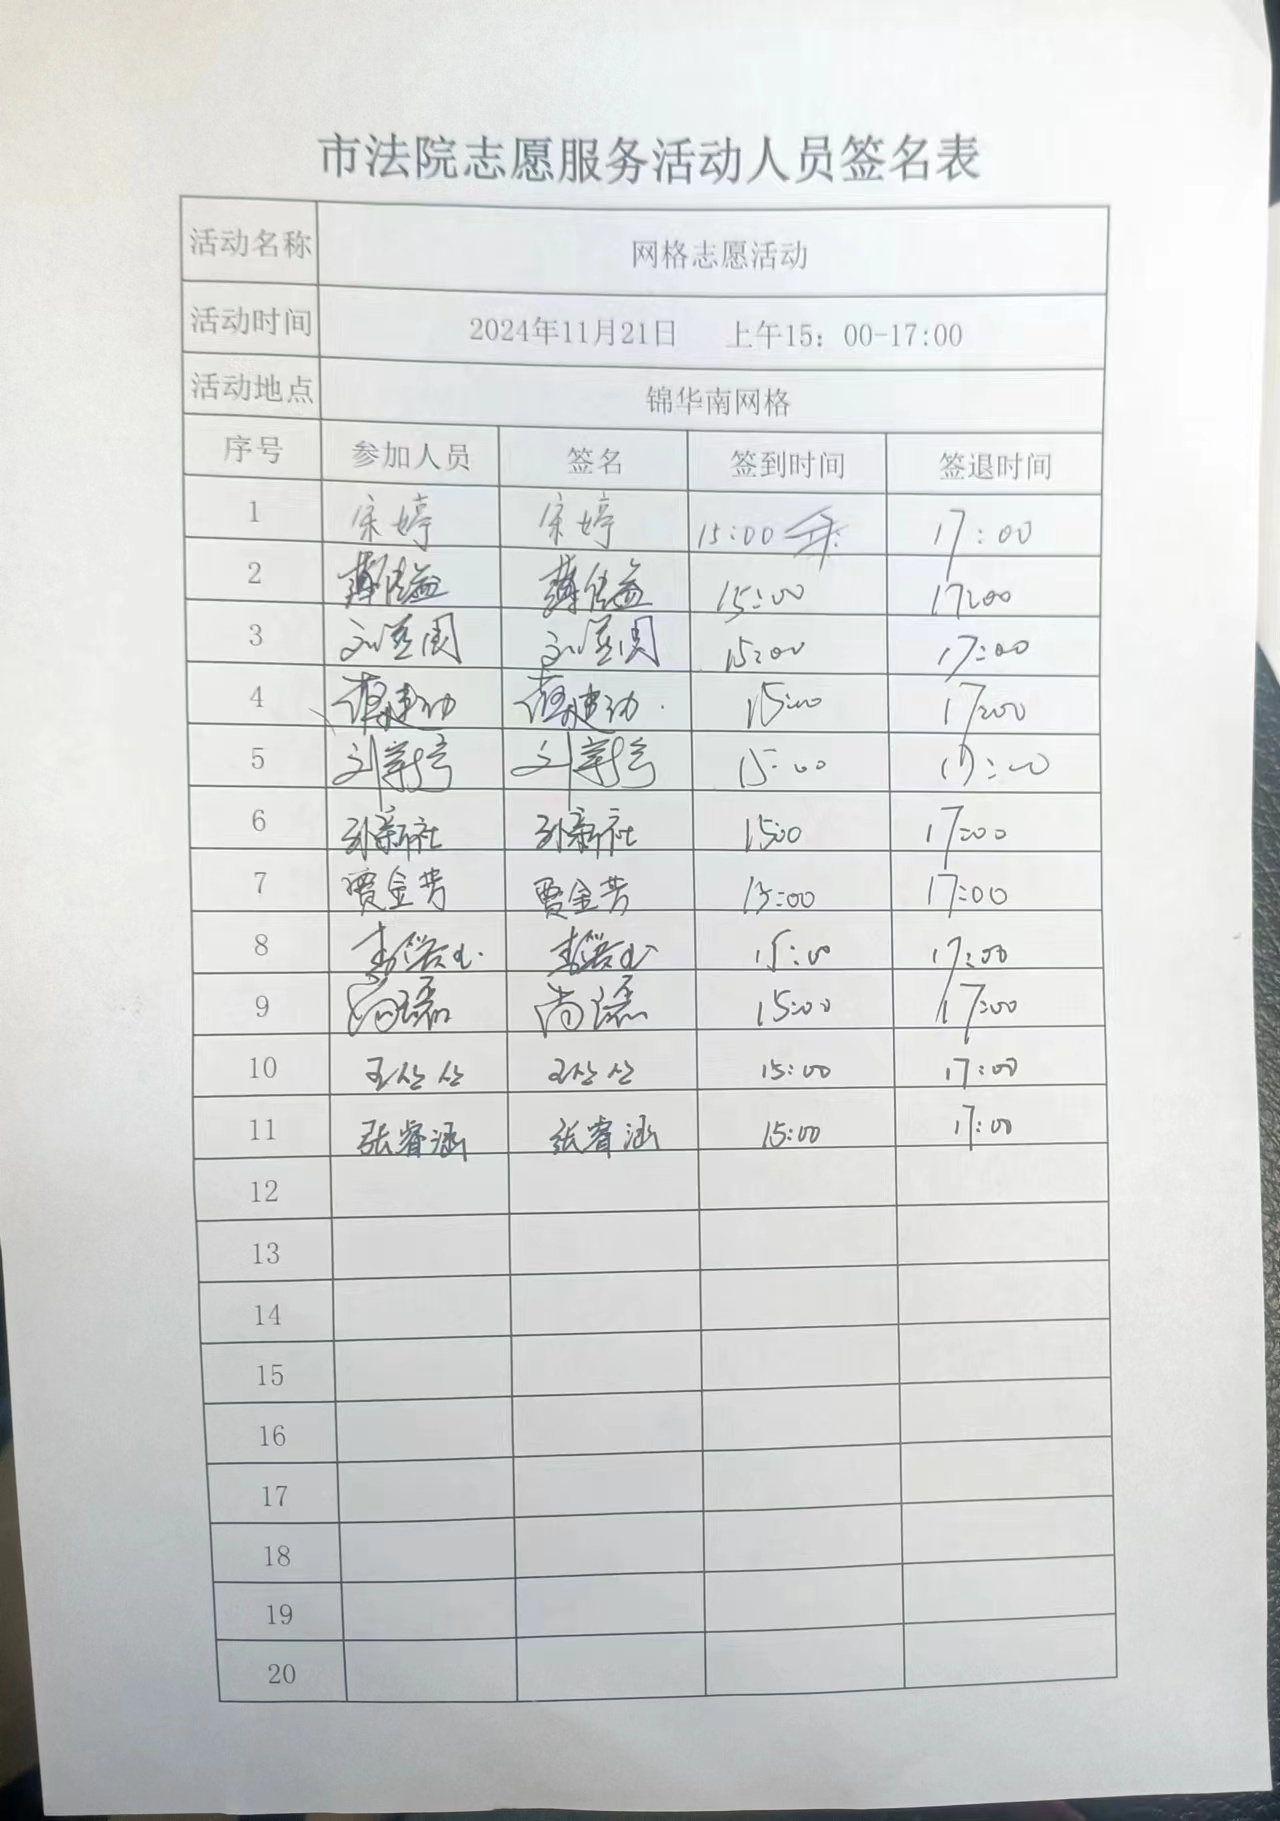 市法院志愿服务活动人员签名表
活动名称 网格志愿活动
活动时间 2024年11月21日 上午15：00-17:00
活动地点 锦华南网格
序号 参加人员 签名 签到时间 签退时间
1 宋婷 宋婷 15:00 17:00
2 15:00 17:00
3 15:00 17:00
4 15:00 17:00
5 15:00 17:00
6 孙新社 孙新社 15:00 17:00
7 贾金芳 贾金芳 15:00 17:00
8 15:00 17:00
9 尚磊 尚磊 15:00 17:00
10 王尘尘 王尘尘 15:00 17:00
11 张睿涵 张睿涵 15:00 17:00
12
13
14
15
16
17
18
19
20